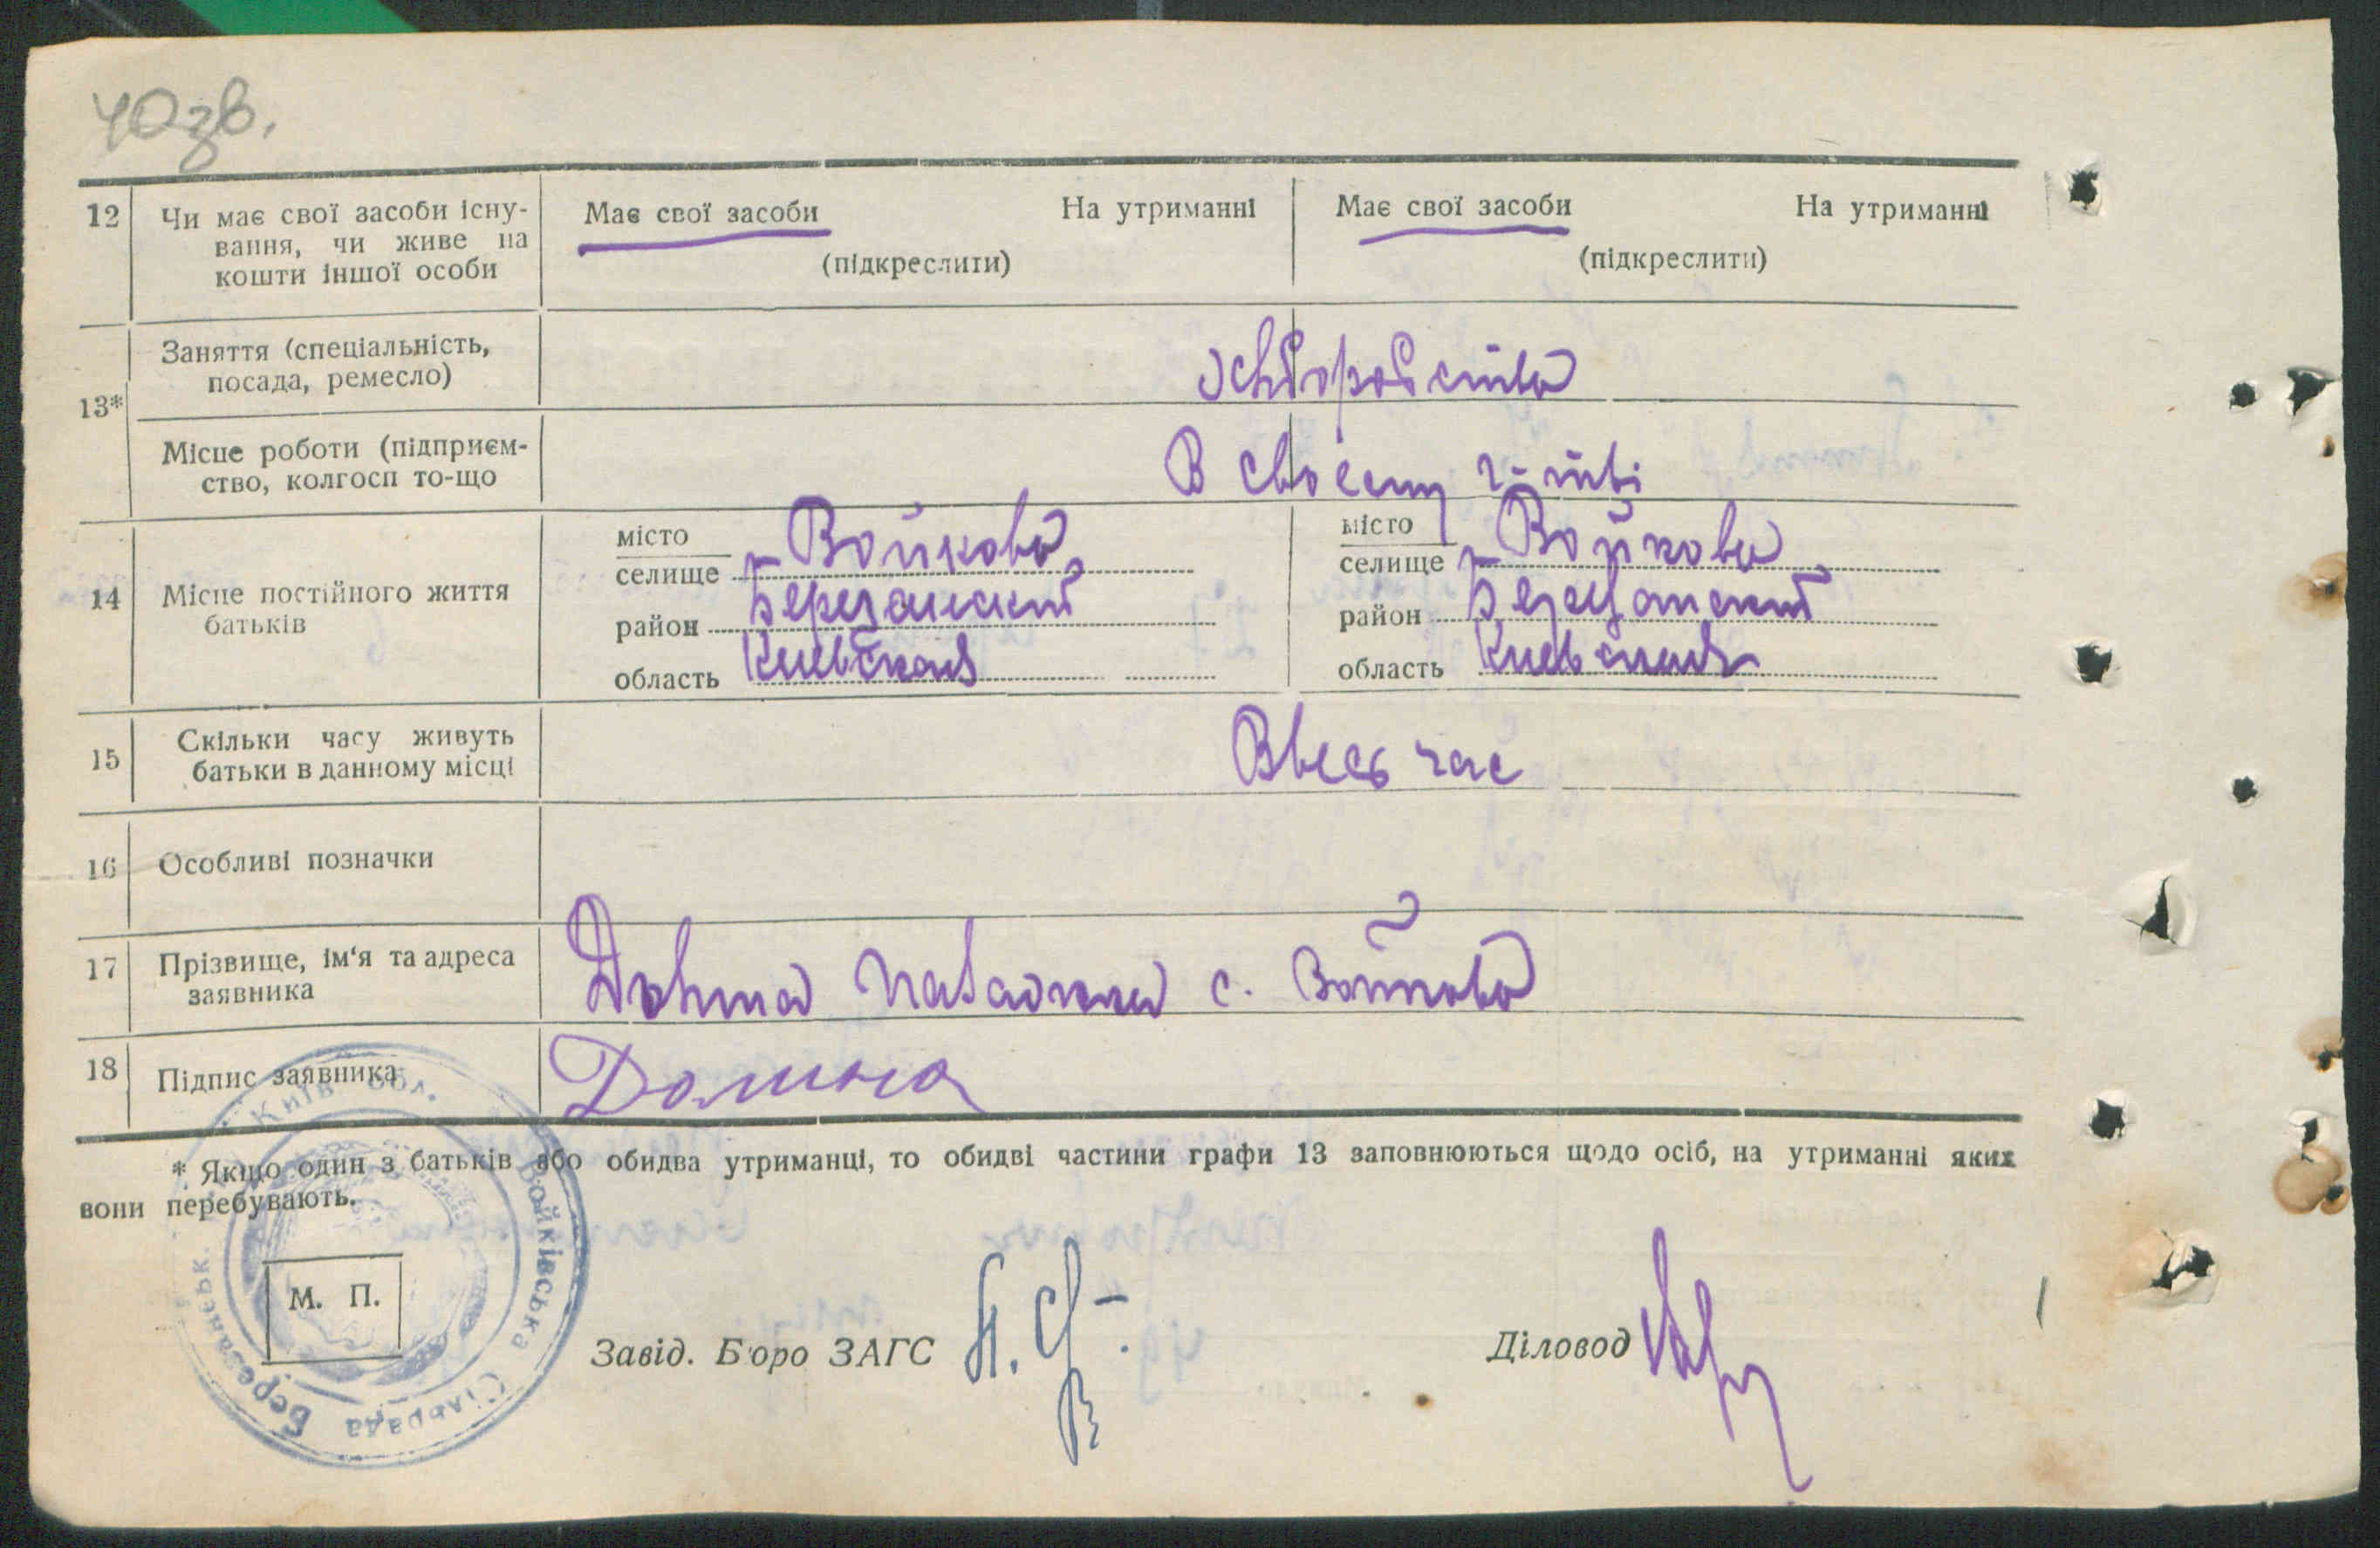 40зв.
12 Чи має свої засоби існу-
вання, чи живе на
кошти іншої особи
Має свої засоби На утриманні
(підкреслити)
Має свої засоби На утриманні
(підкреслити)
13*
Заняття (спеціальність,
посада, ремесло)
Місце роботи (підприєм-
ство, колгосп то-що
В своему
14 Місце постійного життя
батьків
місто
селище Войкова
район Березанский
область Киевская
місто
селище Войкова
район Березанский
область Киевская
15 Скільки часу живуть
батьки в данному місці
Ввесь час
16 Особливі позначки
17 Прізвище, ім'я та адреса
заявника
с. Войкова
18 Підпис заявника
Долина
* Якщо один з батьків або обидва утриманці, то обидві частини графи 13 заповнюються щодо осіб, на утриманні яких
вони перебувають.
М. П.
Київ обл.
Войківська Сільрада
Березанськ.
Завід. Бюро ЗАГС
Діловод